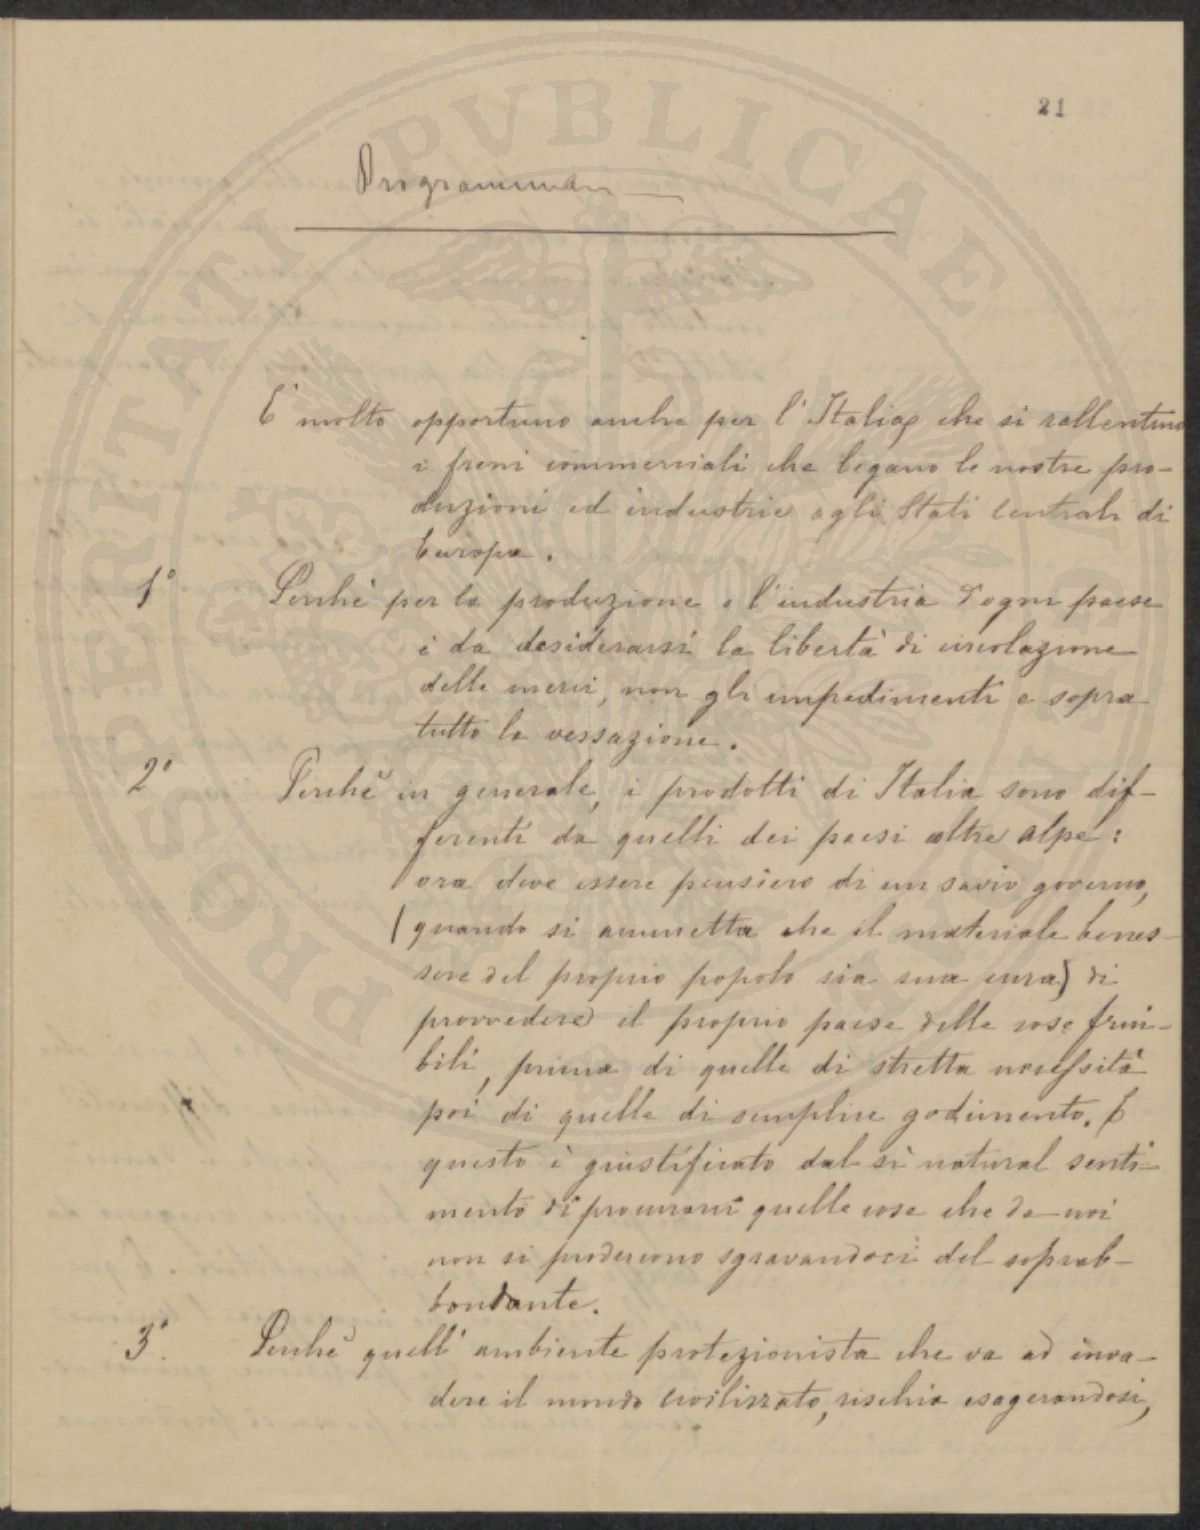 21
Programma
È molto opportuno anche per l'Italia, che si rallentino
i freni commerciali che legano le nostre pro-
duzioni ed industrie agli Stati Centrali di
Europa.
1° Perchè per la produzione e l'industria d'ogni paese
è da desiderarsi la libertà di circolazione
delle merci, non gli impedimenti e sopra
tutto la vessazione.
2° Perchè in generale, i prodotti di Italia sono dif-
ferenti da quelli dei paesi oltre alpe:
ora deve essere pensiero di un savio governo,
(quando si ammetta che il materiale benes-
sere del proprio popolo sia sua cura) di
provvedere il proprio paese delle cose frui-
bili, prima di quelle di stretta necessità
poi di quelle di semplice godimento. E
questo è giustificato dal sì natural senti-
mento di procurarci quelle cose che da noi
non si producono sgravandoci del soprab-
bondante.
3° Perchè quell'ambiente protezionista che va ad inva-
dere il mondo civilizzato, rischia esagerandosi,
PROSPERITATI PVBLICAE